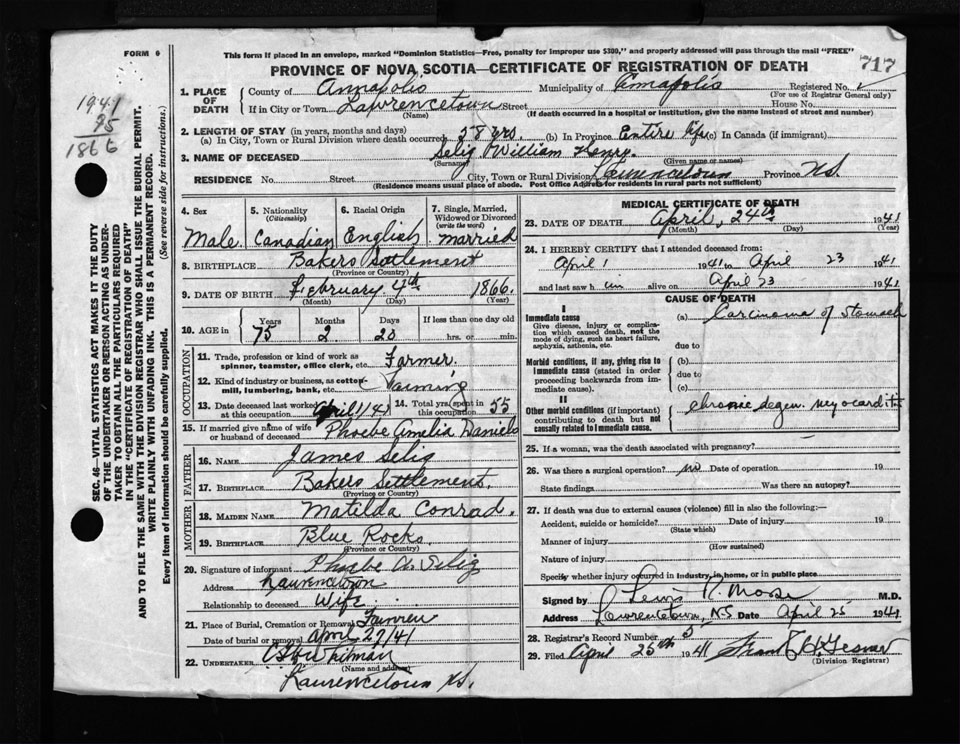 This form if placed in an envelope, marked "Dominion Statistics—Free, penalty for improper use $300," and properly addressed will pass through the mail "FREE"
FORM 6
PROVINCE OF NOVA SCOTIA—CERTIFICATE OF REGISTRATION OF DEATH
717
1941
75
1866
SEC. 46—VITAL STATISTICS ACT MAKES IT THE DUTY
OF THE UNDERTAKER OR PERSON ACTING AS UNDER-
TAKER TO OBTAIN ALL THE PARTICULARS REQUIRED
IN THE "CERTIFICATE OF REGISTRATION OF DEATH"
AND TO FILE THE SAME WITH THE DIVISION REGISTRAR WHO SHALL ISSUE THE BURIAL PERMIT.
WRITE PLAINLY WITH UNFADING INK. THIS IS A PERMANENT RECORD.
Every item of information should be carefully supplied. (See reverse side for instructions.)
1. PLACE OF DEATH
County of Annapolis Municipality of Annapolis Registered No.
(For use of Registrar General only)
If in City or Town Lawrencetown Street House No.
(Name) (If death occurred in a hospital or institution, give its name instead of street and number)
2. LENGTH OF STAY (in years, months and days)
(a) In City, Town or Rural Division where death occurred 58 yrs. (b) In Province Entire life (c) In Canada (if immigrant)
3. NAME OF DECEASED Selig William Henry.
(Surname) (Given name or names)
RESIDENCE No. Street City, Town or Rural Division Lawrencetown Province N.S.
(Residence means usual place of abode. Post Office Address for residents in rural parts not sufficient)
4. Sex Male.
5. Nationality (Citizenship) Canadian
6. Racial Origin English
7. Single, Married, Widowed or Divorced (write the word) married
8. BIRTHPLACE Bakers Settlement
(Province or Country)
9. DATE OF BIRTH February 4th 1866.
(Month) (Day) (Year)
10. AGE in Years 75 Months 2 Days 20 If less than one day old hrs. or min.
OCCUPATION
11. Trade, profession or kind of work as spinner, teamster, office clerk, etc. Farmer.
12. Kind of industry or business, as cotton-mill, lumbering, bank, etc. Farming
13. Date deceased last worked at this occupation April 1/41 14. Total yrs. spent in this occupation 55
15. If married give name of wife or husband of deceased Phoebe Amelia Daniels
FATHER
16. NAME James Selig
17. BIRTHPLACE Bakers Settlement.
(Province or Country)
MOTHER
18. MAIDEN NAME Matilda Conrad.
19. BIRTHPLACE Blue Rocks
(Province or Country)
20. Signature of informant Phoebe A. Selig
Address Lawrencetown
Relationship to deceased Wife.
21. Place of Burial, Cremation or Removal
Date of burial or removal April 27/41
22. UNDERTAKER Whitman
(Name and address)
Lawrencetown N.S.
MEDICAL CERTIFICATE OF DEATH
23. DATE OF DEATH April, 24th 1941
(Month) (Day) (Year)
24. I HEREBY CERTIFY that I attended deceased from:
April 1 1941 to April 23 1941
and last saw him alive on April 23 1941
CAUSE OF DEATH
I
Immediate cause (a) Carcinoma of Stomach
Give disease, injury or complication which caused death, not the mode of dying, such as heart failure, asphyxia, asthenia, etc.
due to
Morbid conditions, if any, giving rise to immediate cause (stated in order proceeding backwards from immediate cause).
(b)
due to
(c)
II
Other morbid conditions (if important) contributing to death but not causally related to immediate cause.
chronic degen. myocarditis
25. If a woman, was the death associated with pregnancy?
26. Was there a surgical operation? no Date of operation 19
State findings Was there an autopsy?
27. If death was due to external causes (violence) fill in also the following:—
Accident, suicide or homicide? Date of injury 19
(State which)
Manner of injury
(How sustained)
Nature of injury
Specify whether injury occurred in industry, in home, or in public place
Signed by Lewis R. Morse M.D.
Address Lawrencetown, N.S Date April 25 1941
28. Registrar's Record Number 5
29. Filed April 25th 1941
(Division Registrar)